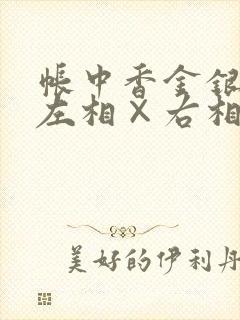 帳中香金銀
左相×右相
美好的伊利丹